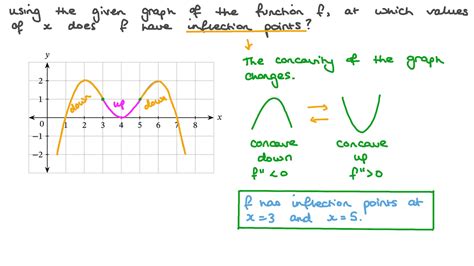 using the given graph of the function f, at which values
of x does f have inflection points?
The concavity of the graph
changes.
y
2
1
−1
−2
1 2 3 4 5 6 7 8 x
down
up
down
concave
down
f" < 0
concave
up
f" > 0
f has inflection points at
x = 3 and x = 5.